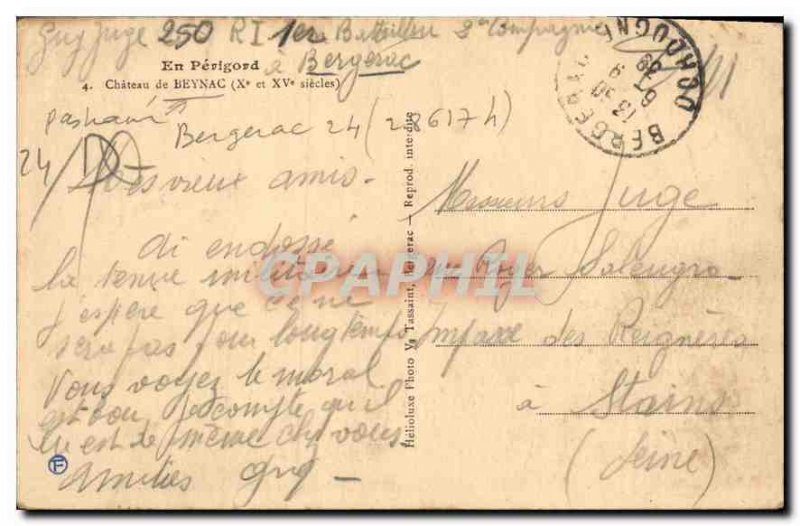 Guy Juge 250 RI 1er Bataillon 2e Compagnie
à Bergerac
En Périgord
4. Château de BEYNAC (Xe et XVe siècles)
Bergerac 24 (28617h)
24
Mes vieux amis.
ai endossé
la tenue militaire
j'espère que ce ne
sera pas pour longtemps
Vous voyez le moral
est bon je compte qu'il
en est de même chez vous
Amitiés Guy
Hélioluxe Photo Vᵉ Tassaint, Bergerac — Reprod interdite
BERGERAC DORDOGNE
13 30
6 9
39
Messieurs Juge
rue Roger Salengro
Impasse des
à Stains
(Seine)
CPAPHIL